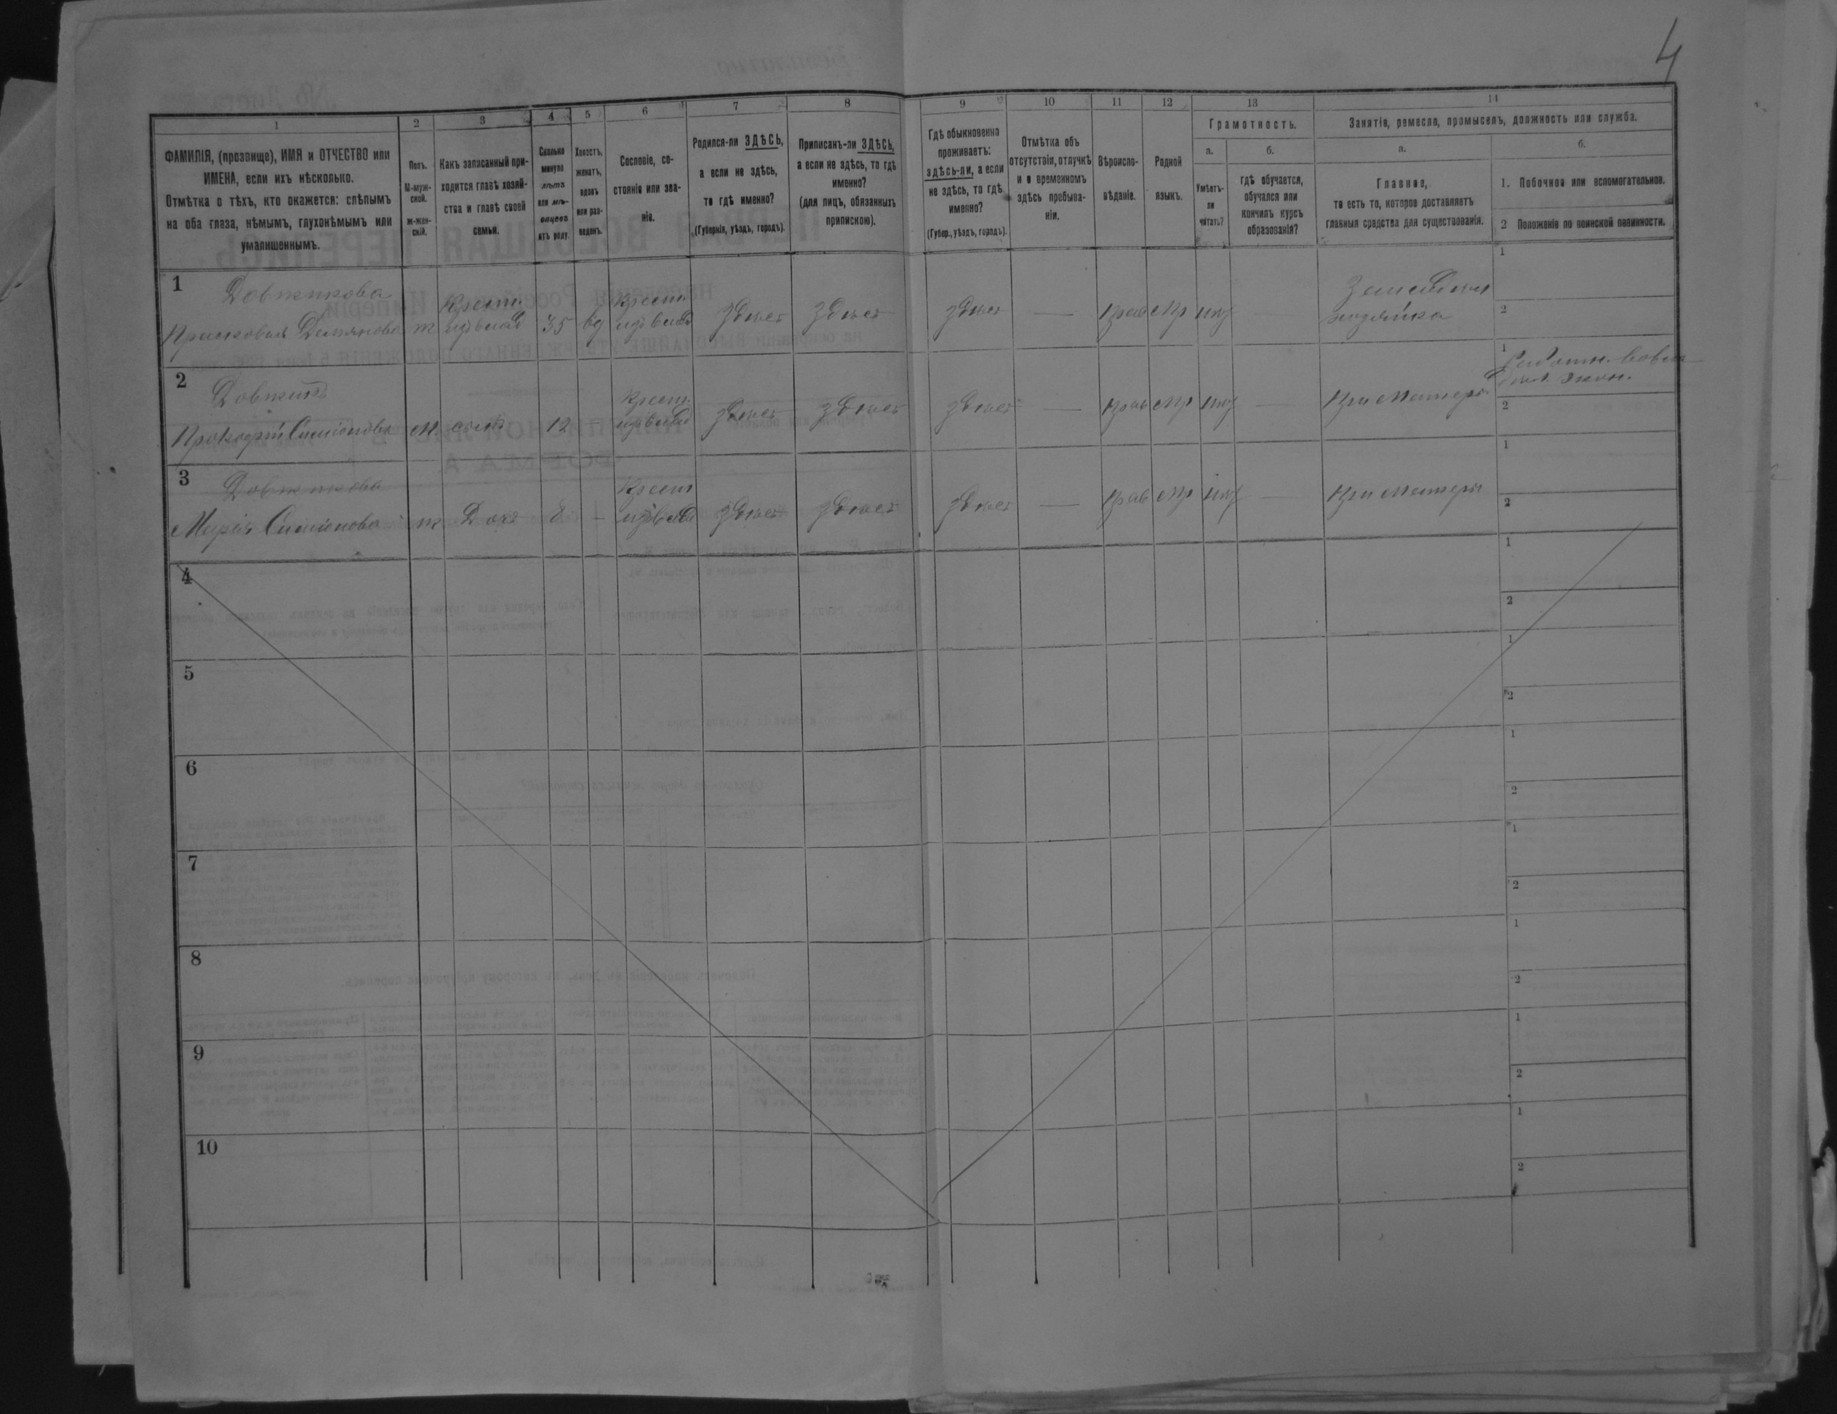 4
1 2 3 4 5 6 7 8 9 10 11 12 13 14
ФАМИЛІЯ, (прозвище), ИМЯ и ОТЧЕСТВО или
ИМЕНА, если ихъ нѣсколько.
Отмѣтка о тѣхъ, кто окажется: слѣпымъ
на оба глаза, нѣмымъ, глухонѣмымъ или
умалишеннымъ.
Полъ.
М-муж-
ской.
ж-жен-
скій.
Какъ записанный при-
ходится главѣ хозяй-
ства и главѣ своей
семьи.
Сколько
минуло
лѣтъ
или мѣ-
сяцевъ
отъ роду.
Холостъ,
женатъ,
вдовъ
или раз-
веденъ.
Сословіе, со-
стояніе или зва-
ніе.
Родился-ли ЗДѢСЬ,
а если не здѣсь,
то гдѣ именно?
(Губернія, уѣздъ, городъ).
Приписанъ-ли ЗДѢСЬ,
а если не здѣсь, то гдѣ
именно?
(для лицъ, обязанныхъ
припискою).
Гдѣ обыкновенно
проживаетъ:
здѣсь-ли, а если
не здѣсь, то гдѣ
именно?
(Губер., уѣздъ, городъ).
Отмѣтка объ
отсутствіи, отлучкѣ
и о временномъ
здѣсь пребыва-
ніи.
Вѣроиспо-
вѣданіе.
Родной
языкъ.
Грамотность.
а.
Умѣетъ-
ли
читать?
б.
гдѣ обучается,
обучался или
кончилъ курсъ
образованія?
Занятіе, ремесло, промыселъ, должность или служба.
а.
Главное,
то есть то, которое доставляетъ
главныя средства для существованія.
б.
1. Побочное или вспомогательное.
2 Положеніе по воинской повинности.
1
Довженкова
Прасковья Демянова ж 35 вд здесь здесь здесь — прав мр нѣт — хозяйка
1
2
2
Прокофій Симіонова м. сынъ 12 — здесь здесь здесь — прав мр нѣт — при матери
1
2
3
Довженкова
Марія Симіонова ж Дочь 8 — здесь здесь здесь — прав мр нѣт — при матери
1
2
4
1
2
5
1
2
6
1
2
7
1
2
8
1
2
9
1
2
10
1
2